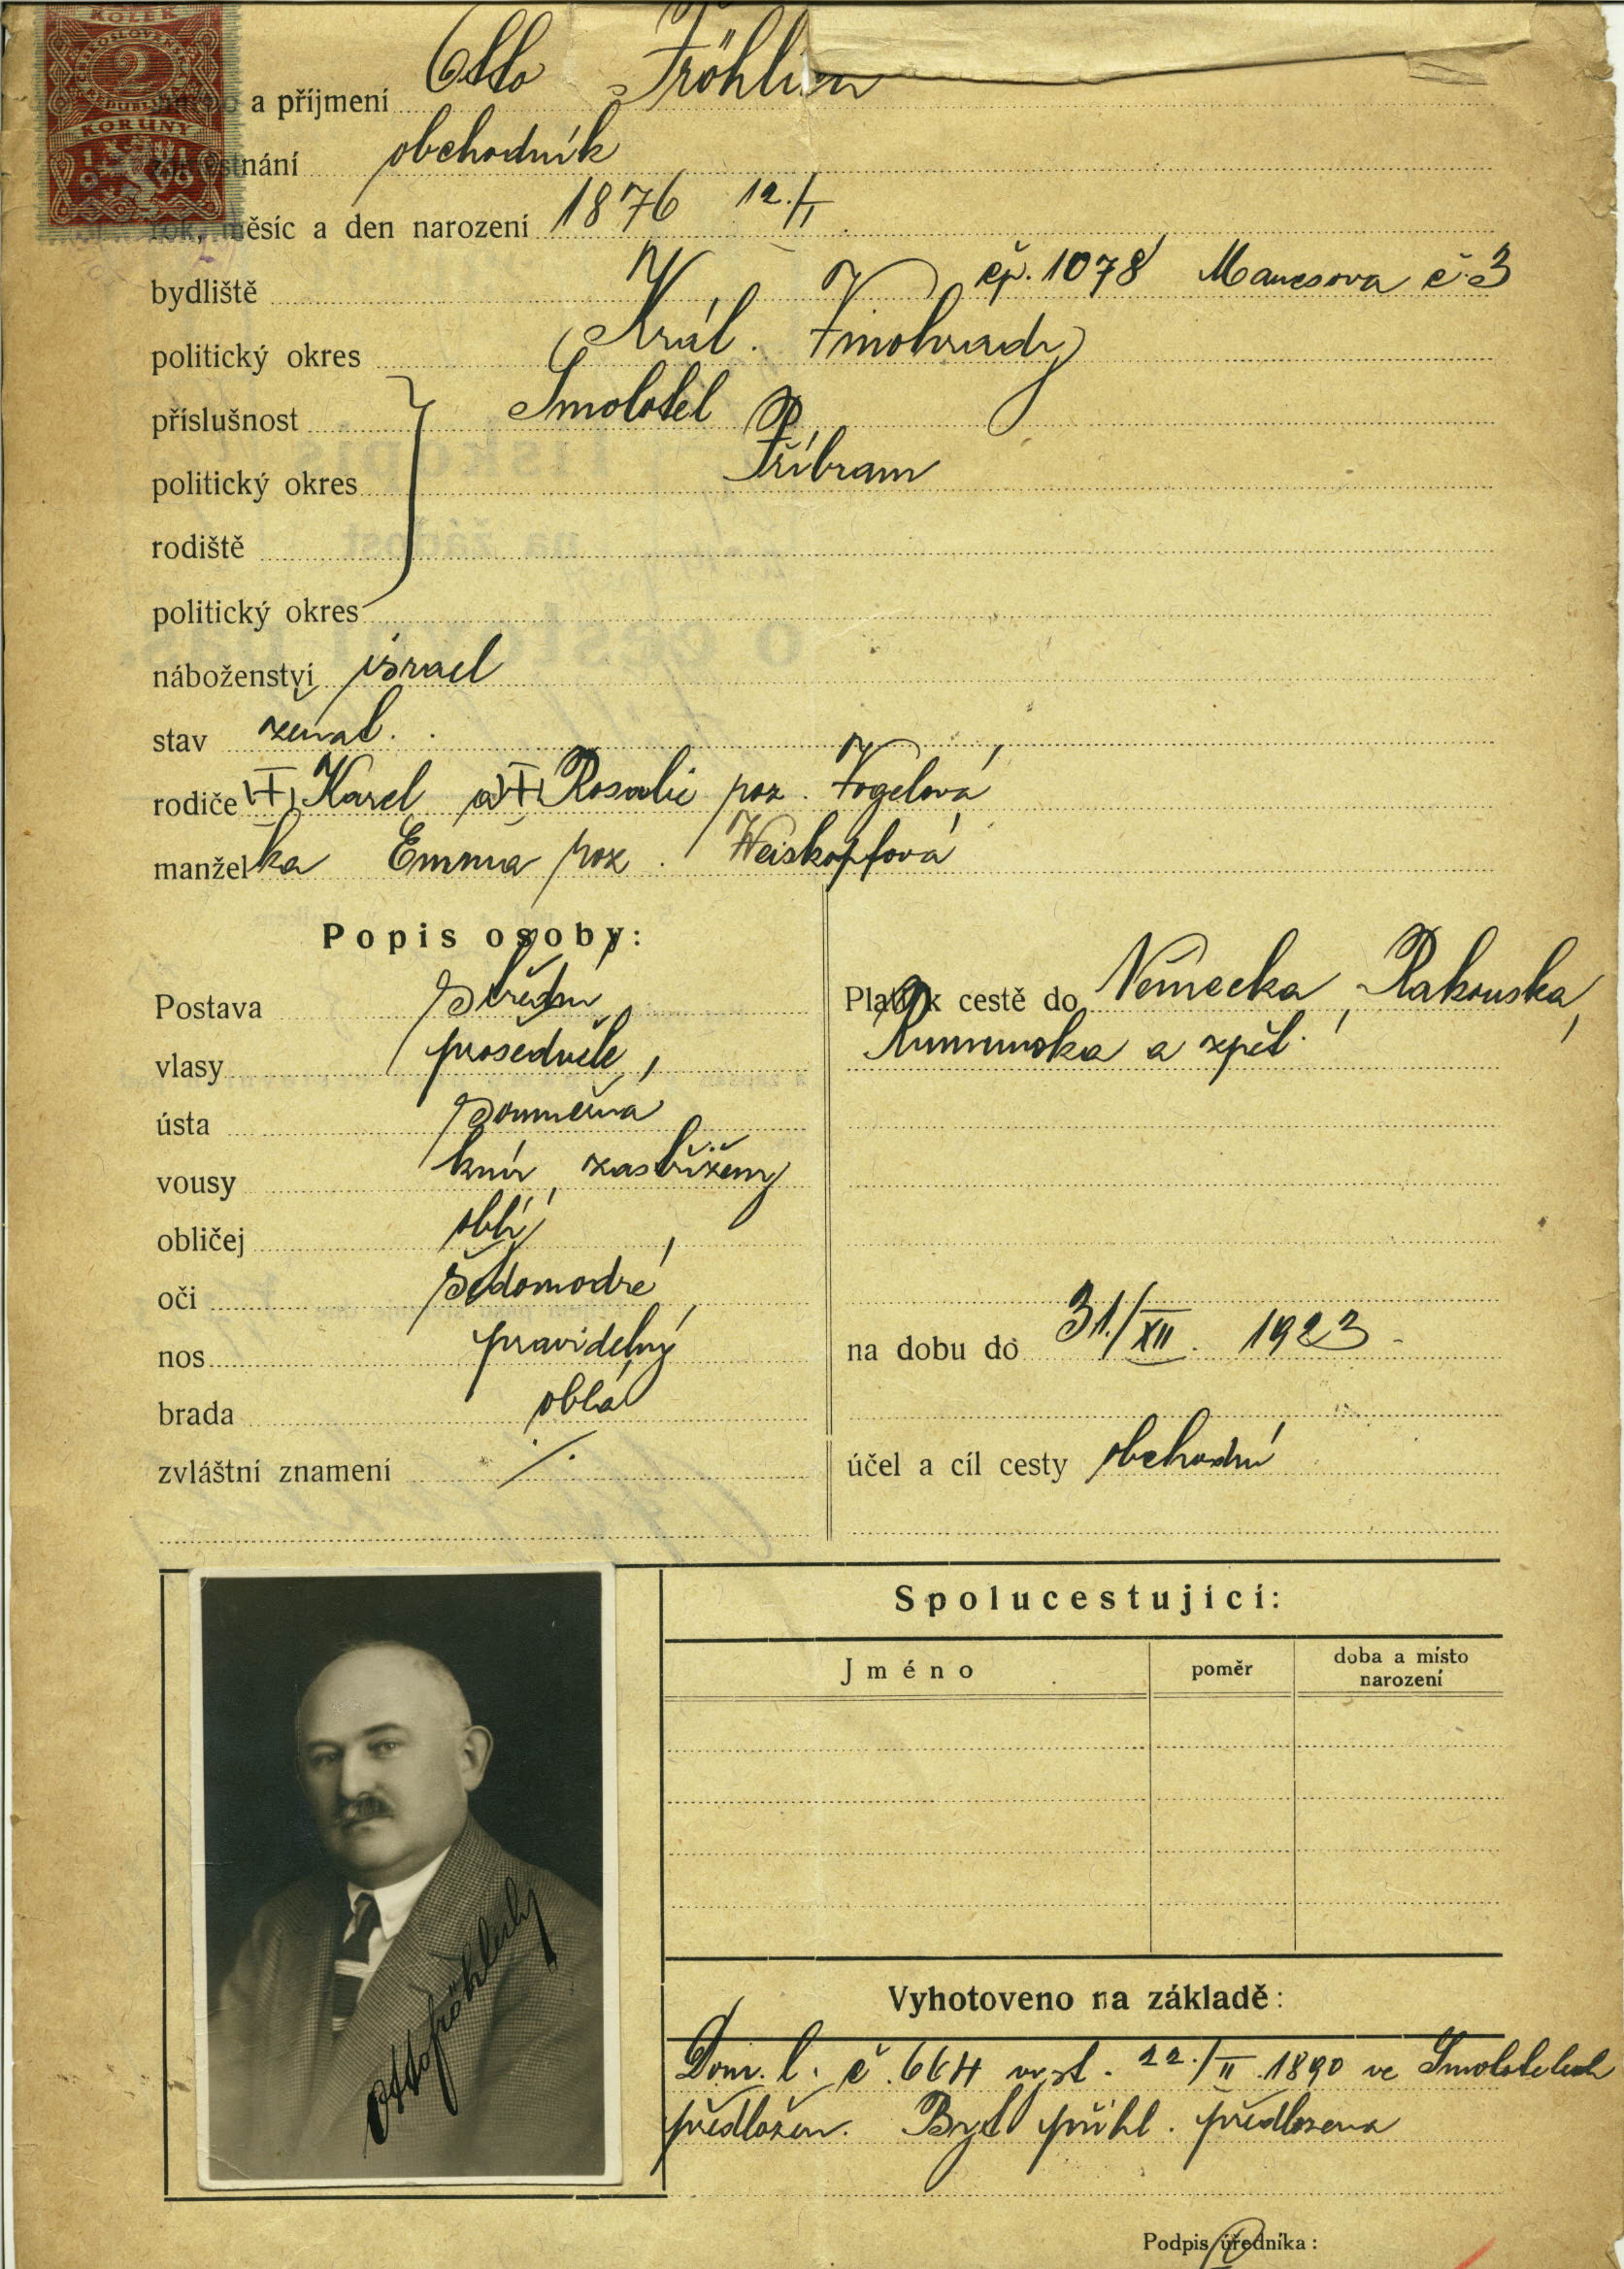 KOLEK
ČESKOSLOVENSKÁ
2
REPUBLIKA
KORUNY
a příjmení Otto Fröhlich
zaměstnání obchodník
rok, měsíc a den narození 1876 12./I.
bydliště čp. 1078 Manesova č. 3
politický okres Král. Vinohrady
příslušnost Smolotel
politický okres Příbram
rodiště
politický okres
náboženství israel
stav ženat.
rodiče (+) Karel a (+) Rosalie roz. Vogelová
manželka Emma roz. Weiskopfová
Popis osoby:
Postava střední
vlasy prošedivělé
ústa souměrná
vousy knír zastřižený
obličej oblý
oči šedomodré
nos pravidelný
brada oblá
zvláštní znamení ./.
Platí k cestě do Německa, Rakouska,
Rumunska a zpět.
na dobu do 31./XII. 1923
účel a cíl cesty obchodní
Spolucestující:
Jméno poměr doba a místo narození
Otto Fröhlich
Vyhotoveno na základě:
Dom. l. č. 664 vyst. 22./II. 1890 ve Smolotelech
předložen. Byt. přihl. předložena
Podpis úředníka: